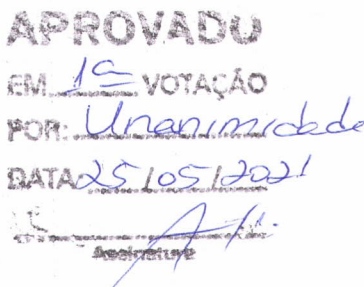 APROVADO
EM 1ª VOTAÇÃO
POR: Unanimidade
DATA 25/05/2021
Assinatura